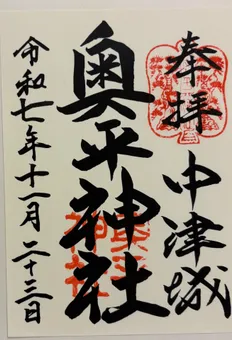 奉拝
中津城
奥平神社
令和七年十一月二十三日